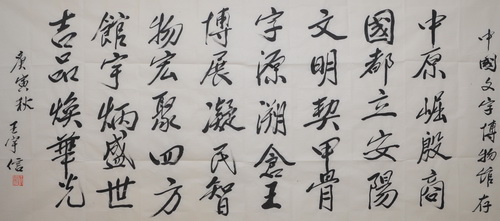 中國文字博物館存
中原崛殷商
國都立安陽
文明契甲骨
字源溯倉王
博展凝民智
物宏聚四方
館宇炳盛世
吉品煥華光
庚寅秋 王宇信